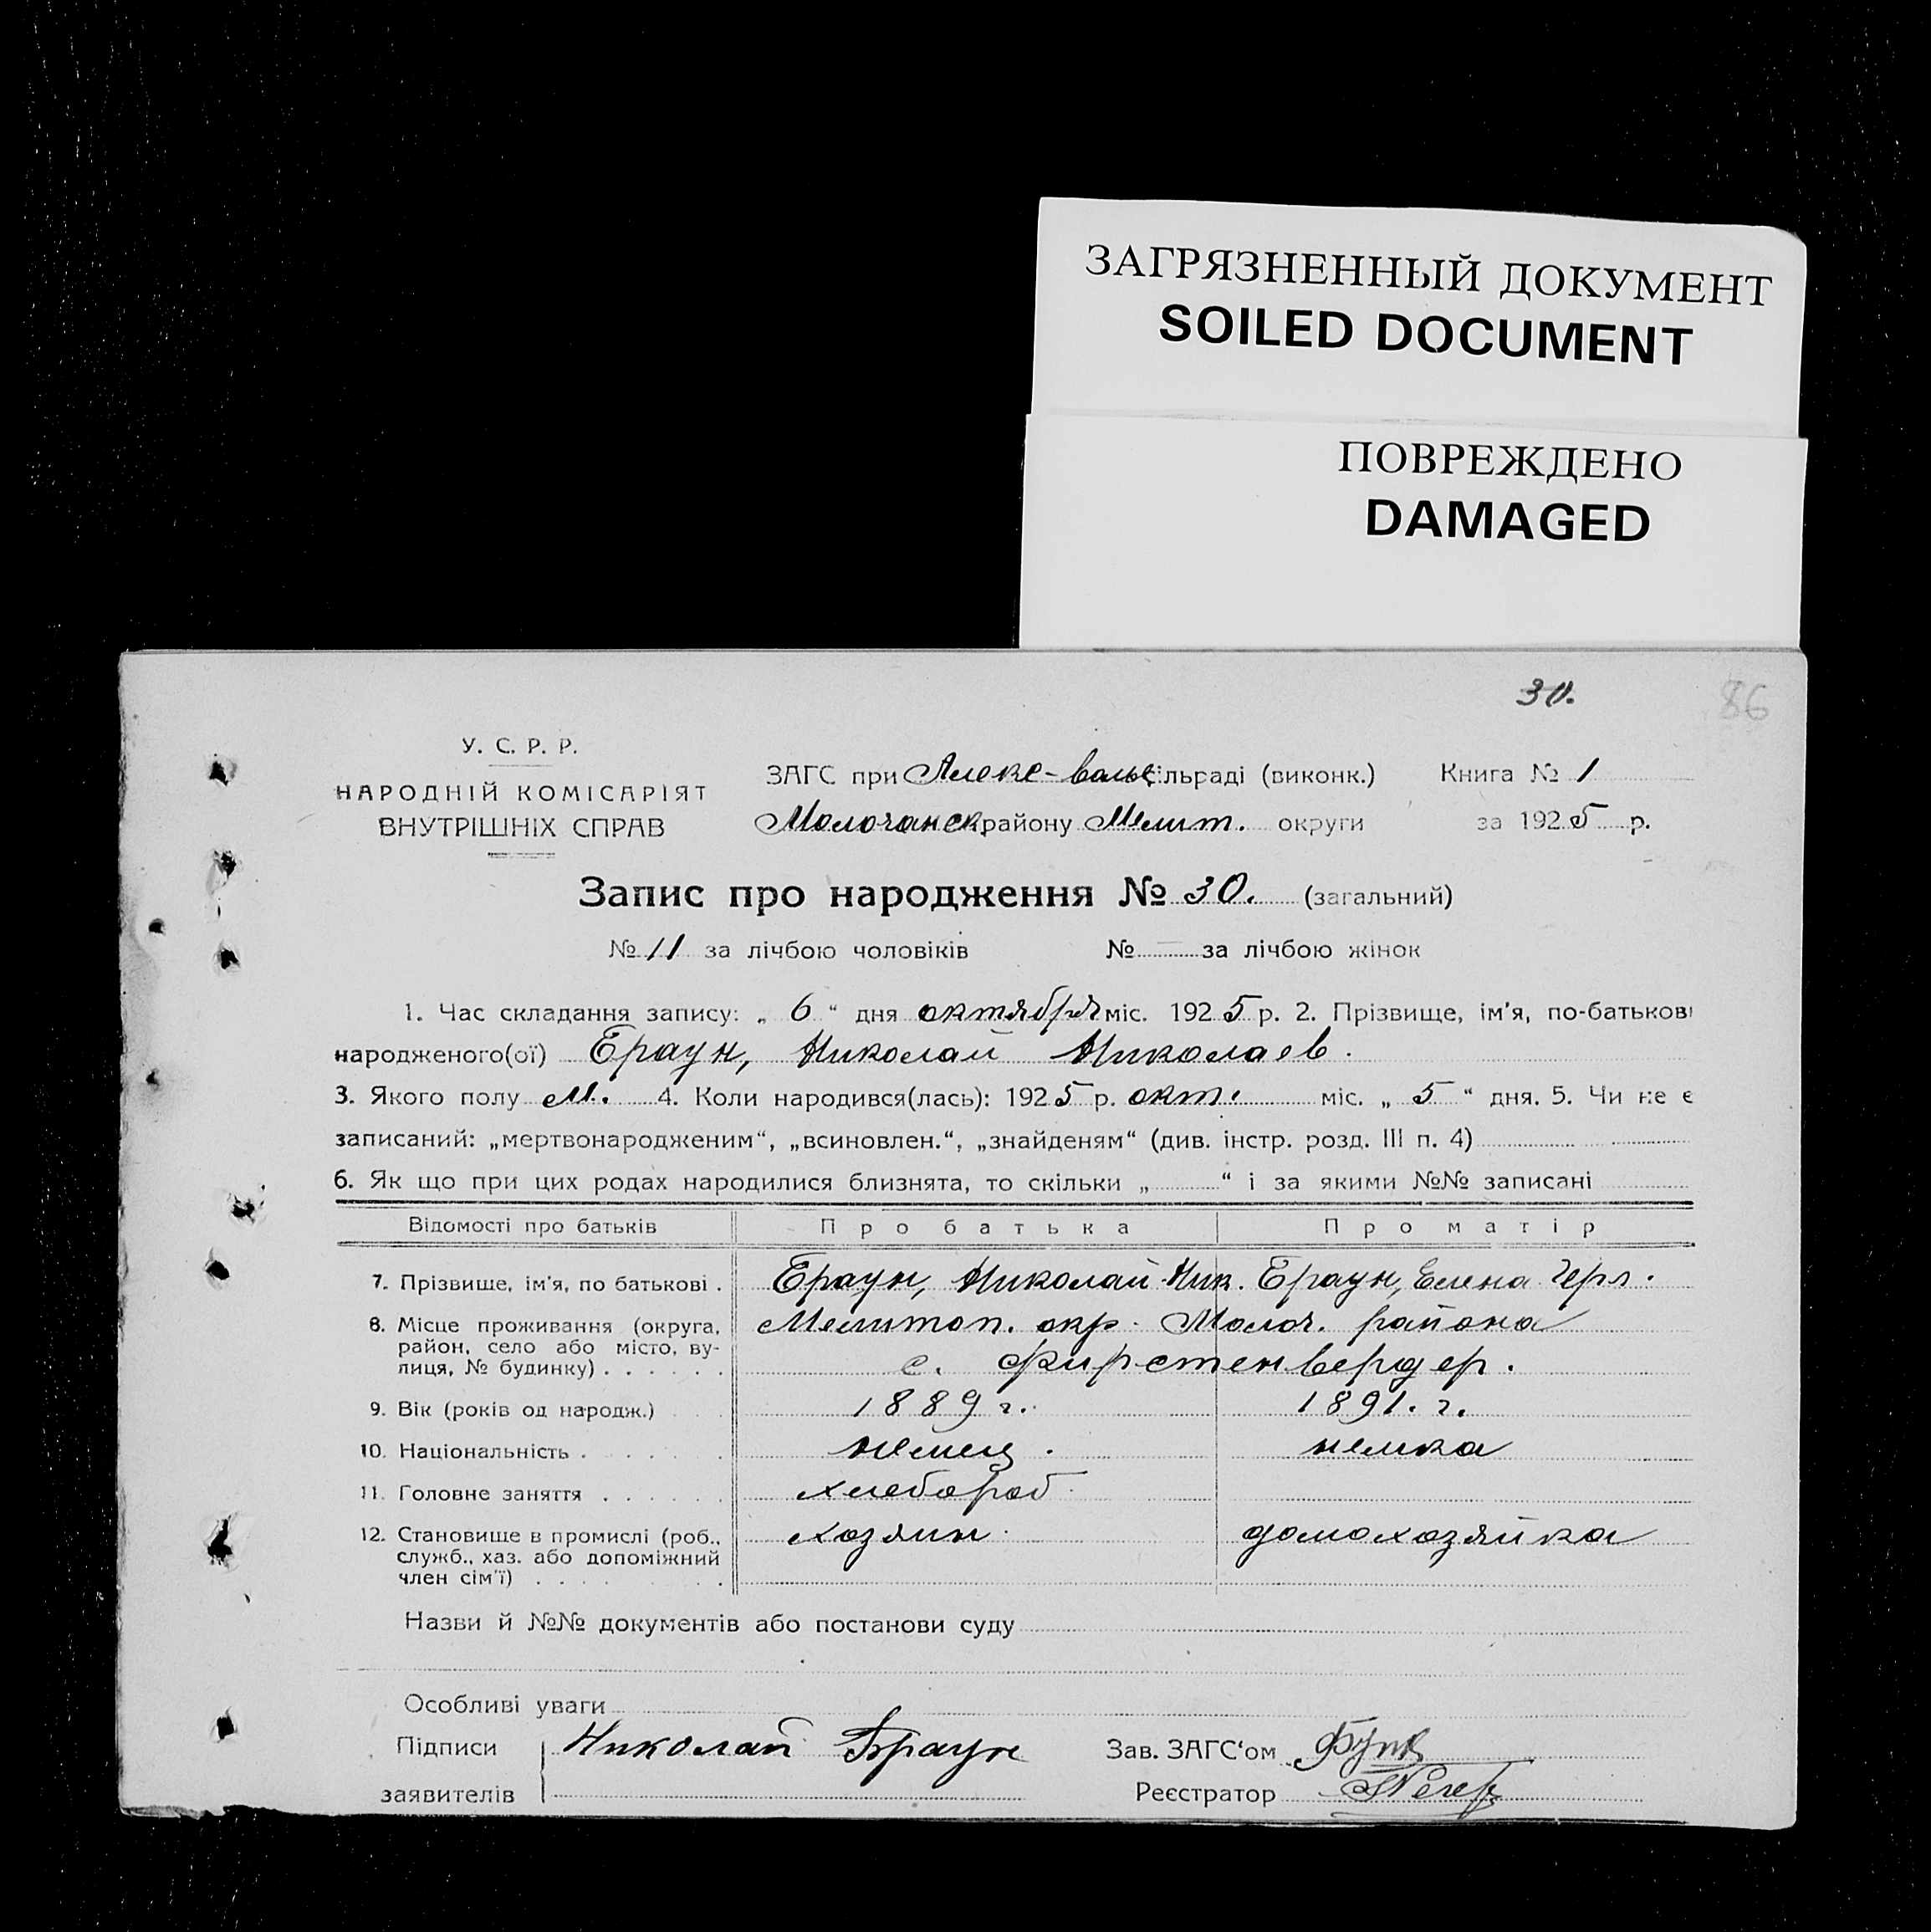 ЗАГРЯЗНЕННЫЙ ДОКУМЕНТ
SOILED DOCUMENT
ПОВРЕЖДЕНО
DAMAGED
30. 86
У. С. Р. Р.
НАРОДНІЙ КОМІСАРІЯТ
ВНУТРІШНІХ СПРАВ
ЗАГС при Алекс-вальс ільраді (виконк.) Книга № 1
Молочанск. району Мелит. округи за 1925 р.
Запис про народження № 30. (загальний)
№ 11 за лічбою чоловіків № — за лічбою жінок
1. Час складання запису: „ 6 “ дня октября міс. 1925 р. 2. Прізвище, ім'я, по-батькові
народженого(ої) Браун, Николай Николаев.
3. Якого полу м. 4. Коли народився(лась): 1925 р. окт. міс. „ 5 “ дня. 5. Чи не є
записаний: „мертвонародженим“, „всиновлен.“, „знайденям“ (див. інстр. розд. III п. 4)
6. Як що при цих родах народилися близнята, то скільки „ “ і за якими №№ записані
Відомості про батьків Про батька Про матір
7. Прізвище, ім'я, по батькові . Браун, Николай Ник. Браун, Елена
8. Місце проживання (округа, Мелитоп. окр. Молоч. района
район, село або місто, ву-
лиця, № будинку) . . . . . . с. Фирстенвердер.
9. Вік (років од народж.) 1889 г. 1891. г.
10. Національність . немец. немка
11. Головне заняття . . . . . . хлебороб
12. Становище в промислі (роб., хозяин домохозяйка
служб., хаз. або допоміжний
член сім'ї) . . . .
Назви й №№ документів або постанови суду
Особливі уваги
Підписи Николай Браун Зав. ЗАГС‘ом
заявителів Реєстратор